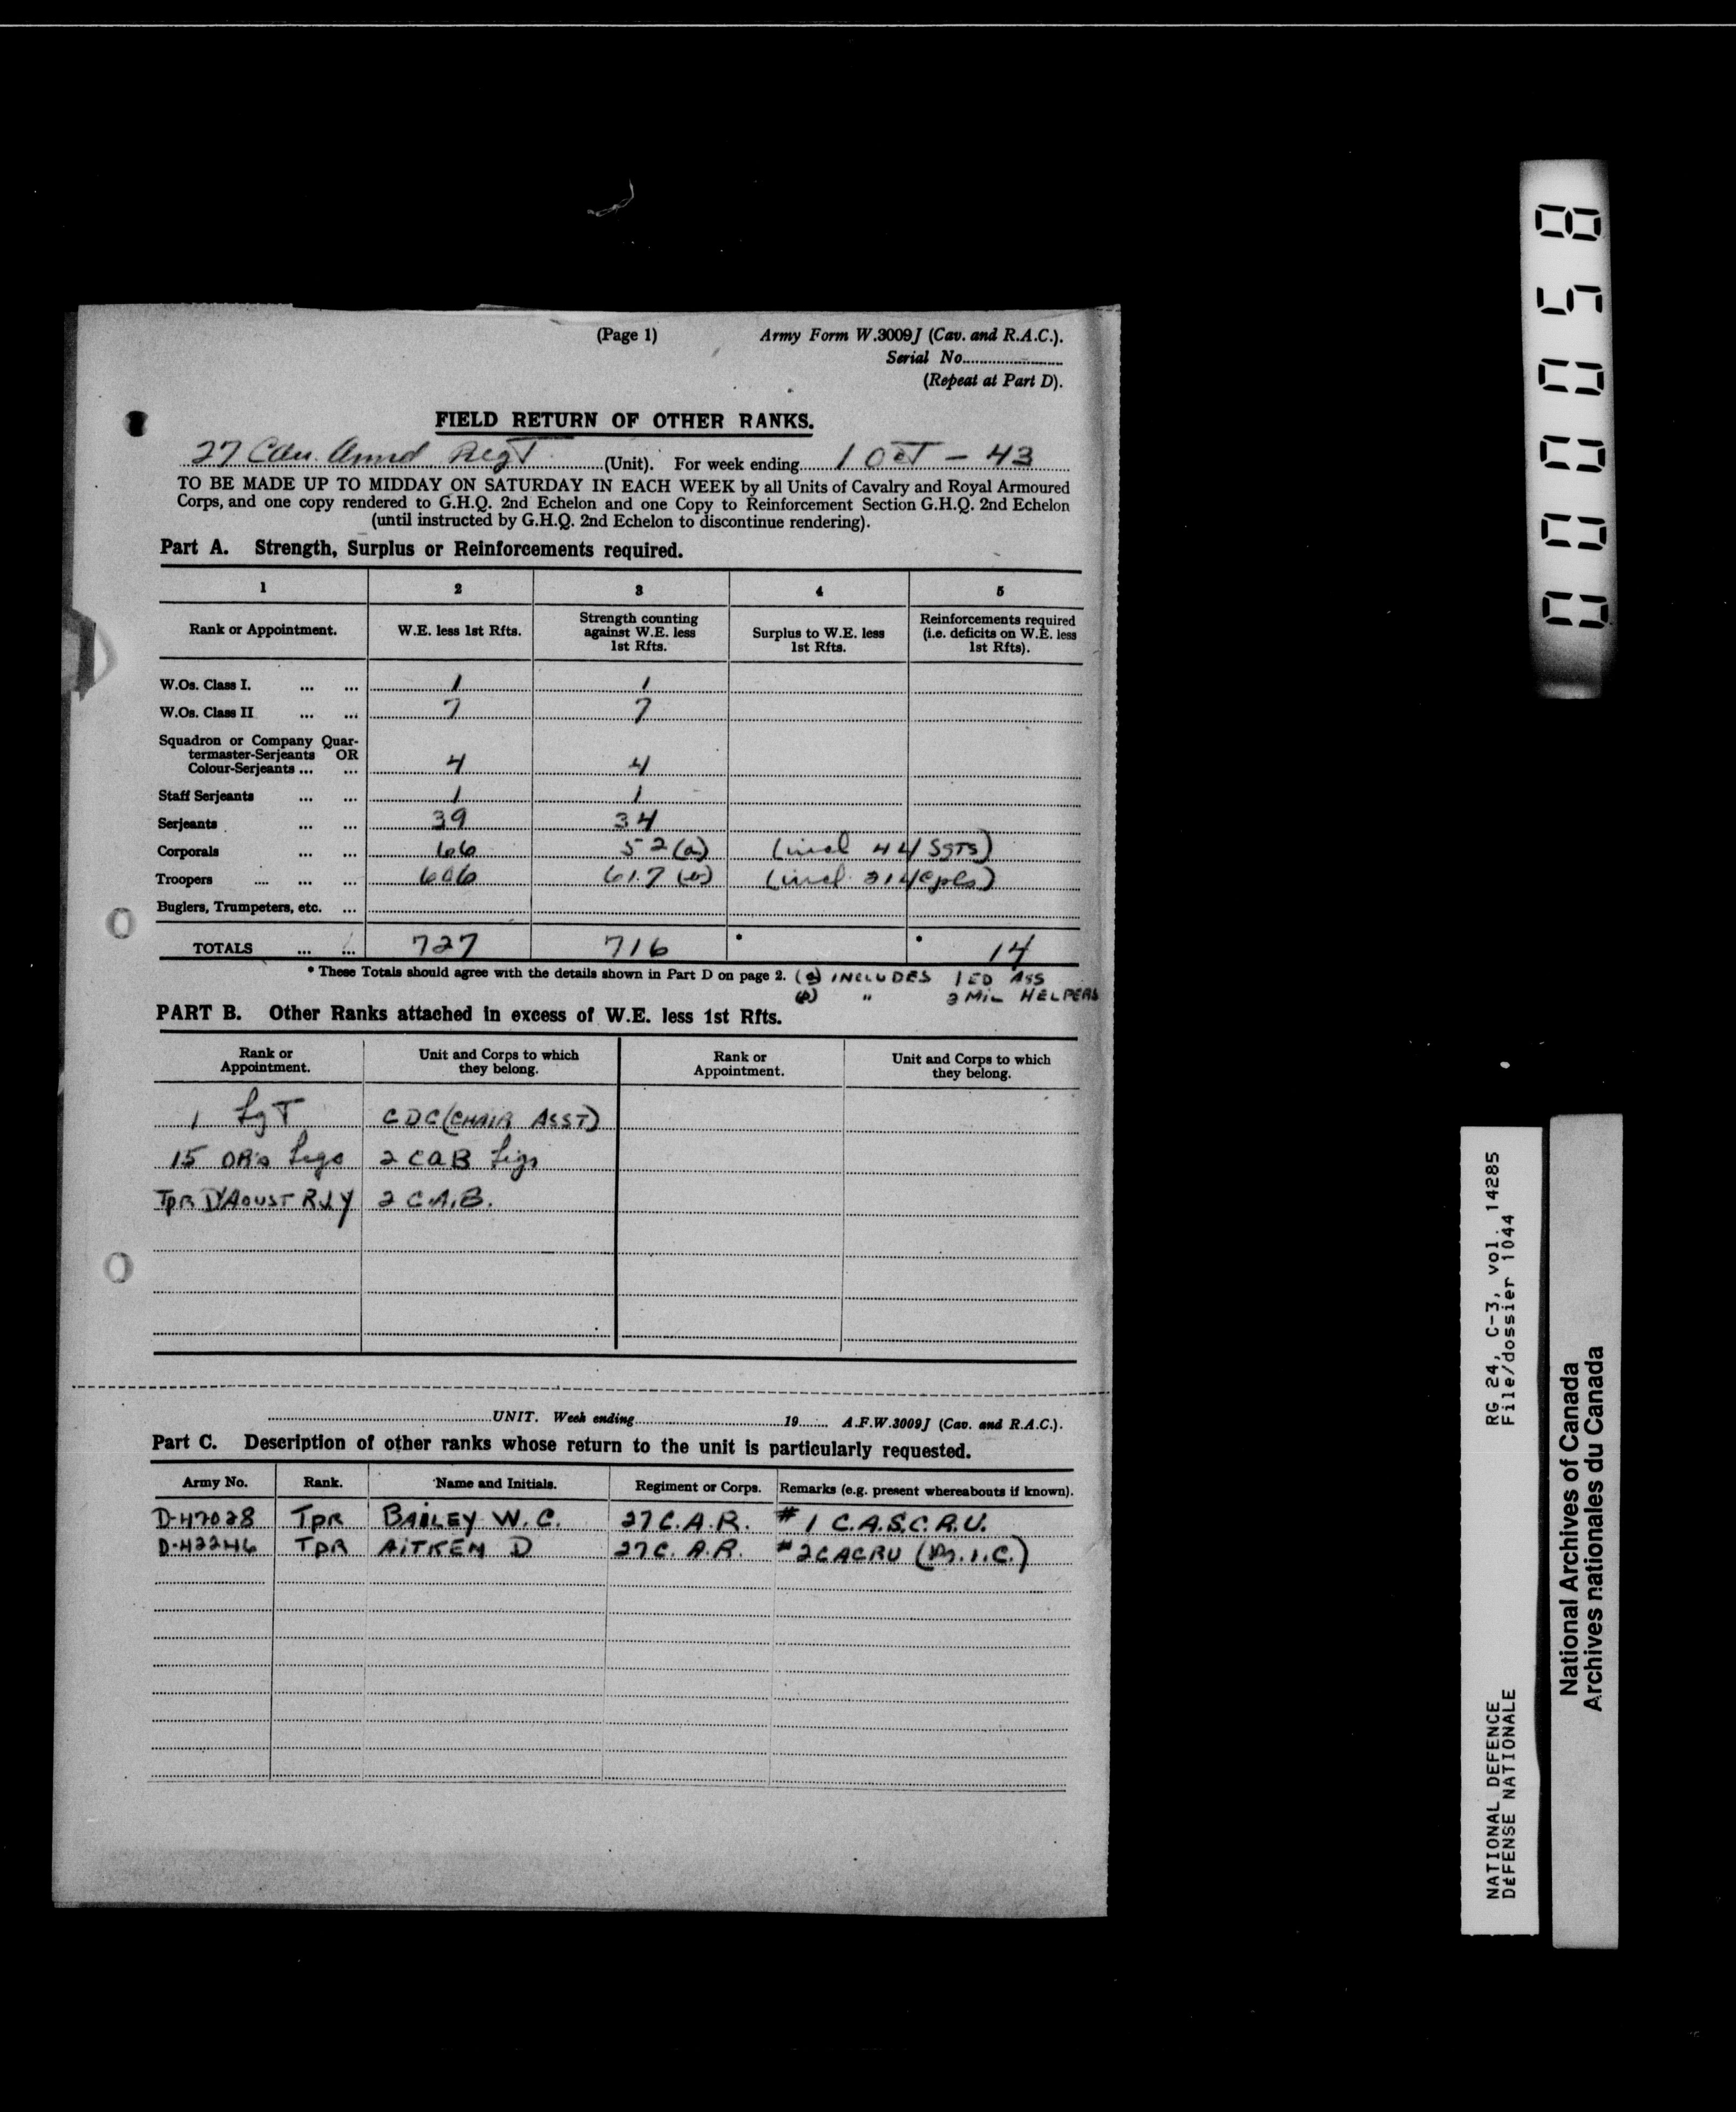 (Page 1) Army Form W.3009J (Cav. and R.A.C.).
Serial No.
(Repeat at Part D).
FIELD RETURN OF OTHER RANKS.
27 Cdn. Armd Regt (Unit). For week ending 1 OCT - 43
TO BE MADE UP TO MIDDAY ON SATURDAY IN EACH WEEK by all Units of Cavalry and Royal Armoured
Corps, and one copy rendered to G.H.Q. 2nd Echelon and one Copy to Reinforcement Section G.H.Q. 2nd Echelon
(until instructed by G.H.Q. 2nd Echelon to discontinue rendering).
Part A. Strength, Surplus or Reinforcements required.
1 2 3 4 5
Rank or Appointment. W.E. less 1st Rfts. Strength counting against W.E. less 1st Rfts. Surplus to W.E. less 1st Rfts. Reinforcements required (i.e. deficits on W.E. less 1st Rfts).
W.Os. Class I. ... ... 1 1
W.Os. Class II ... ... 7 7
Squadron or Company Quar-
termaster-Serjeants OR
Colour-Serjeants ... ... 4 4
Staff Serjeants ... ... 1 1
Serjeants ... ... 39 34
Corporals ... ... 66 52 (a) (incl 4 L/SGTS)
Troopers .... ... ... 606 617 (b) (incl 21 L/Cpls)
Buglers, Trumpeters, etc. ...
TOTALS ... ... 727 716 * * 14
* These Totals should agree with the details shown in Part D on page 2. (a) INCLUDES 1 ED ASS
(b) " 2 MIL HELPERS
PART B. Other Ranks attached in excess of W.E. less 1st Rfts.
Rank or Appointment. Unit and Corps to which they belong. Rank or Appointment. Unit and Corps to which they belong.
1 SgT CDC (CHAIR ASST)
15 OR's Sigs 2 CAB Sigs
TPR D'AOUST RJY 2 C.A.B.
UNIT. Week ending 19 A.F.W.3009J (Cav. and R.A.C.).
Part C. Description of other ranks whose return to the unit is particularly requested.
Army No. Rank. Name and Initials. Regiment or Corps. Remarks (e.g. present whereabouts if known).
D-47028 TPR BAILEY W.C. 27 C.A.R. # 1 C.A.S.C.R.U.
D-42246 TPR AITKEN D 27 C.A.R. # 2 CACRU
00058
RG 24, C-3, vol. 14285
File/dossier 1044
NATIONAL DEFENCE
DÉFENSE NATIONALE
National Archives of Canada
Archives nationales du Canada